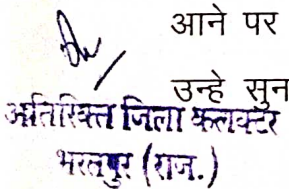 आने पर
उन्हे सुन
अतिरिक्त जिला कलक्टर
भरतपुर (राज.)